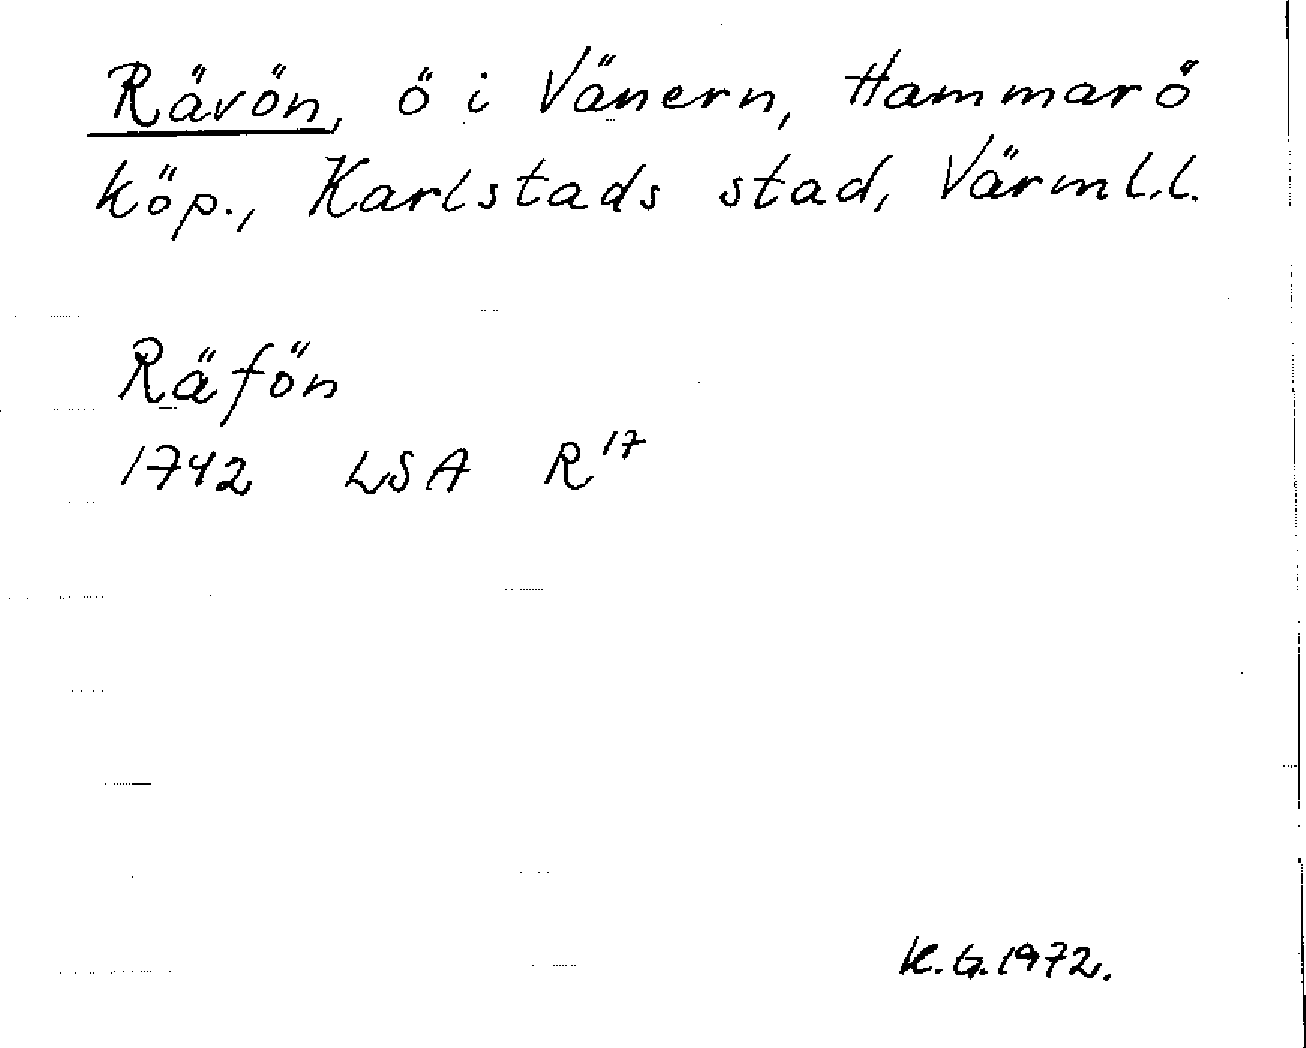 Rävön, ö i Vänern, Hammarö
köp., Karlstads stad, Värml.l.
Räfön
1742 LSA R 17
K.G.1972.